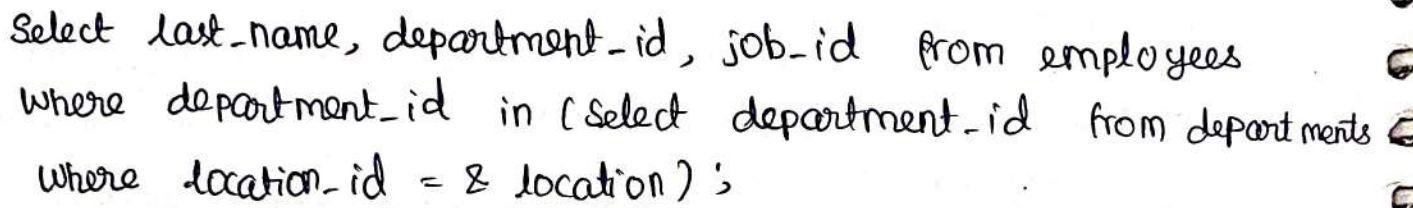 Select last_name, department_id, job_id from employees
where department_id in (Select department_id from departments
where location_id = & location);